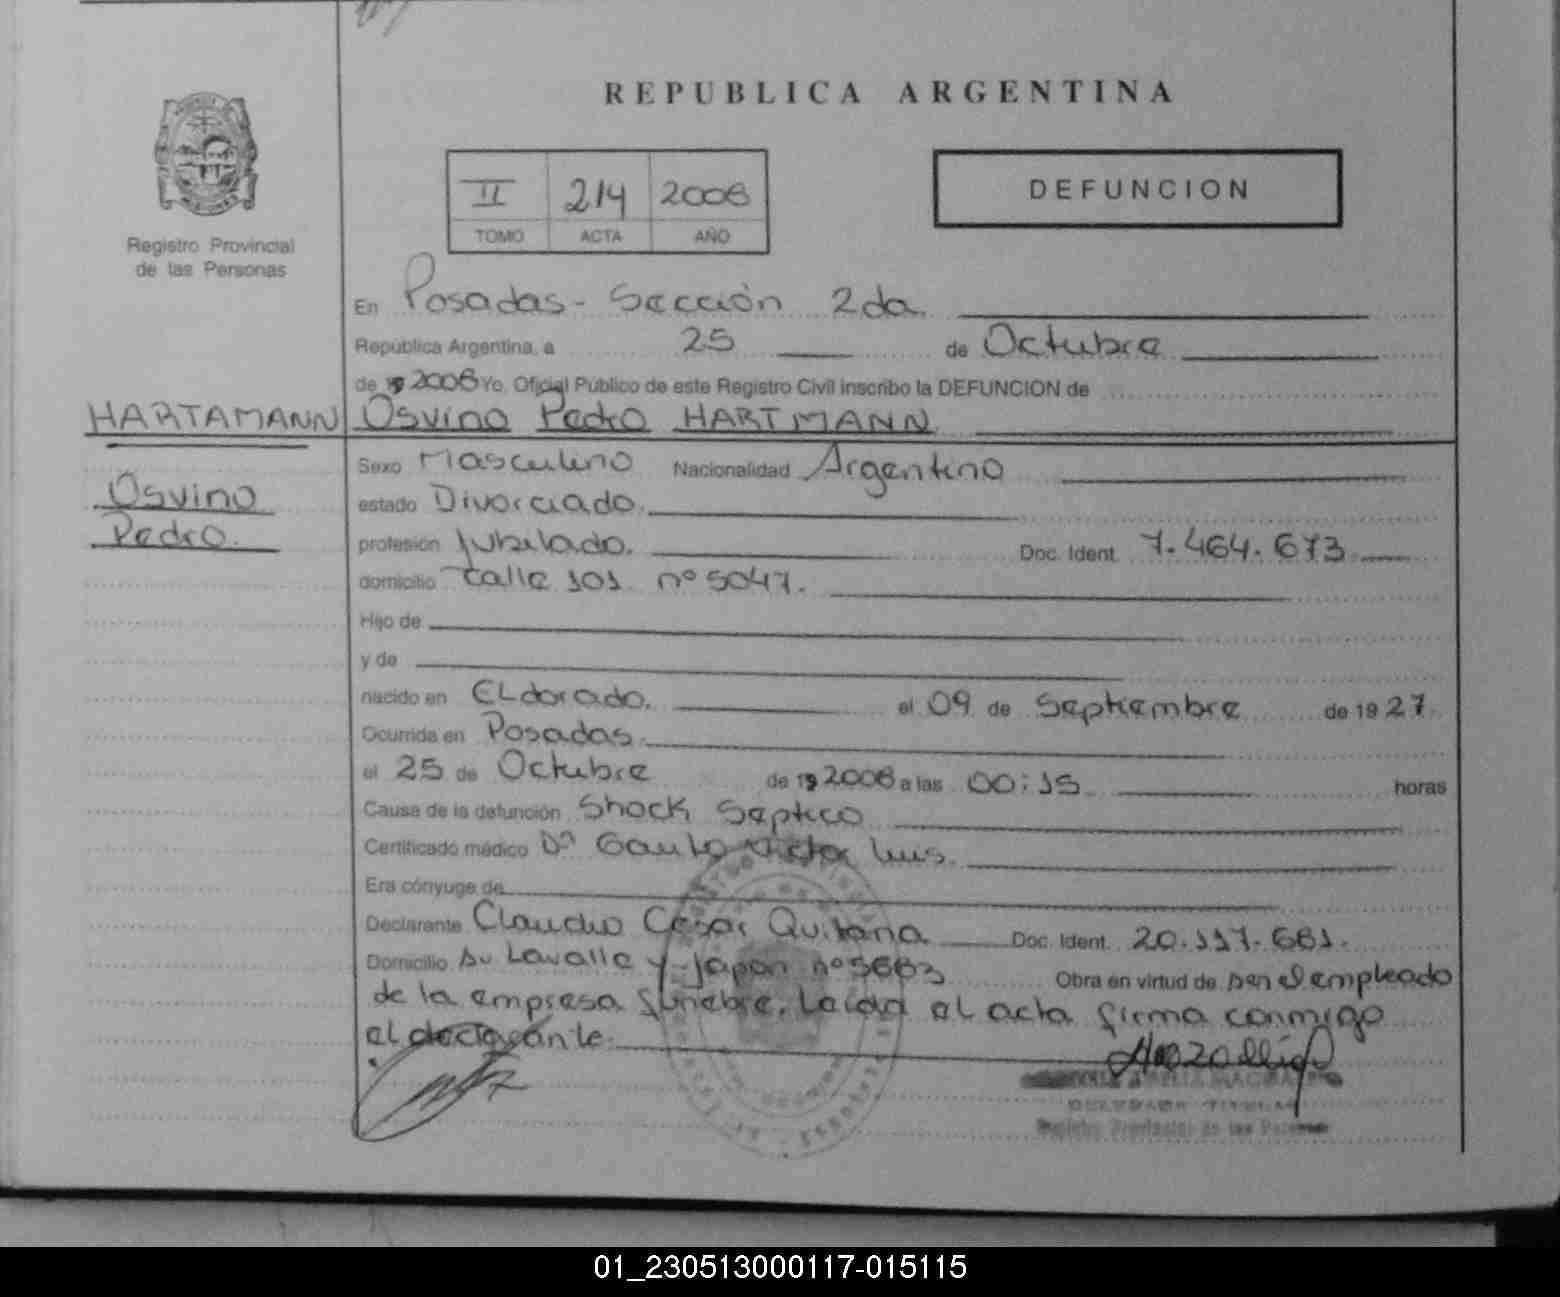 REPUBLICA ARGENTINA
II 214 2008
TOMO ACTA AÑO
DEFUNCION
Registro Provincial
de las Personas
En Posadas - Sección 2da.
República Argentina, a 25 de Octubre
de 19 2008 Yo, Oficial Público de este Registro Civil inscribo la DEFUNCION de
HARTAMANN Osvino Pedro HARTMANN
Osvino
Pedro.
Sexo Masculino Nacionalidad Argentino
estado Divorciado.
profesión Jubilado. Doc. Ident. 7.464.673
domicilio Calle 101 nº 5047.
Hijo de
y de
nacido en ELdorado. el 09 de Septiembre de 19 27
Ocurrida en Posadas.
el 25 de Octubre de 19 2008 a las 00:15 horas
Causa de la defunción Shock Septico
Certificado médico Dr Victor Luis.
Era cónyuge de
Declarante Claudio Cesar Quitana Doc. Ident. 20.117.681.
Domicilio Av Lavalle y Japon nº 5663 Obra en virtud de ser el empleado
de la empresa funebre. Leida el acta firma conmigo
el declarante.
Registro Provincial de las Personas
01_230513000117-015115